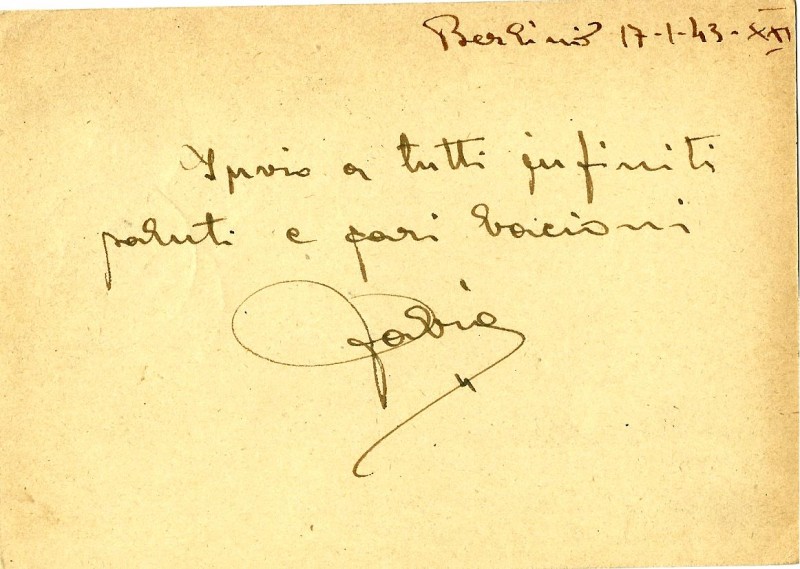 Berlino 17-1-43-XXI
Invio a tutti infiniti
saluti e cari bacioni